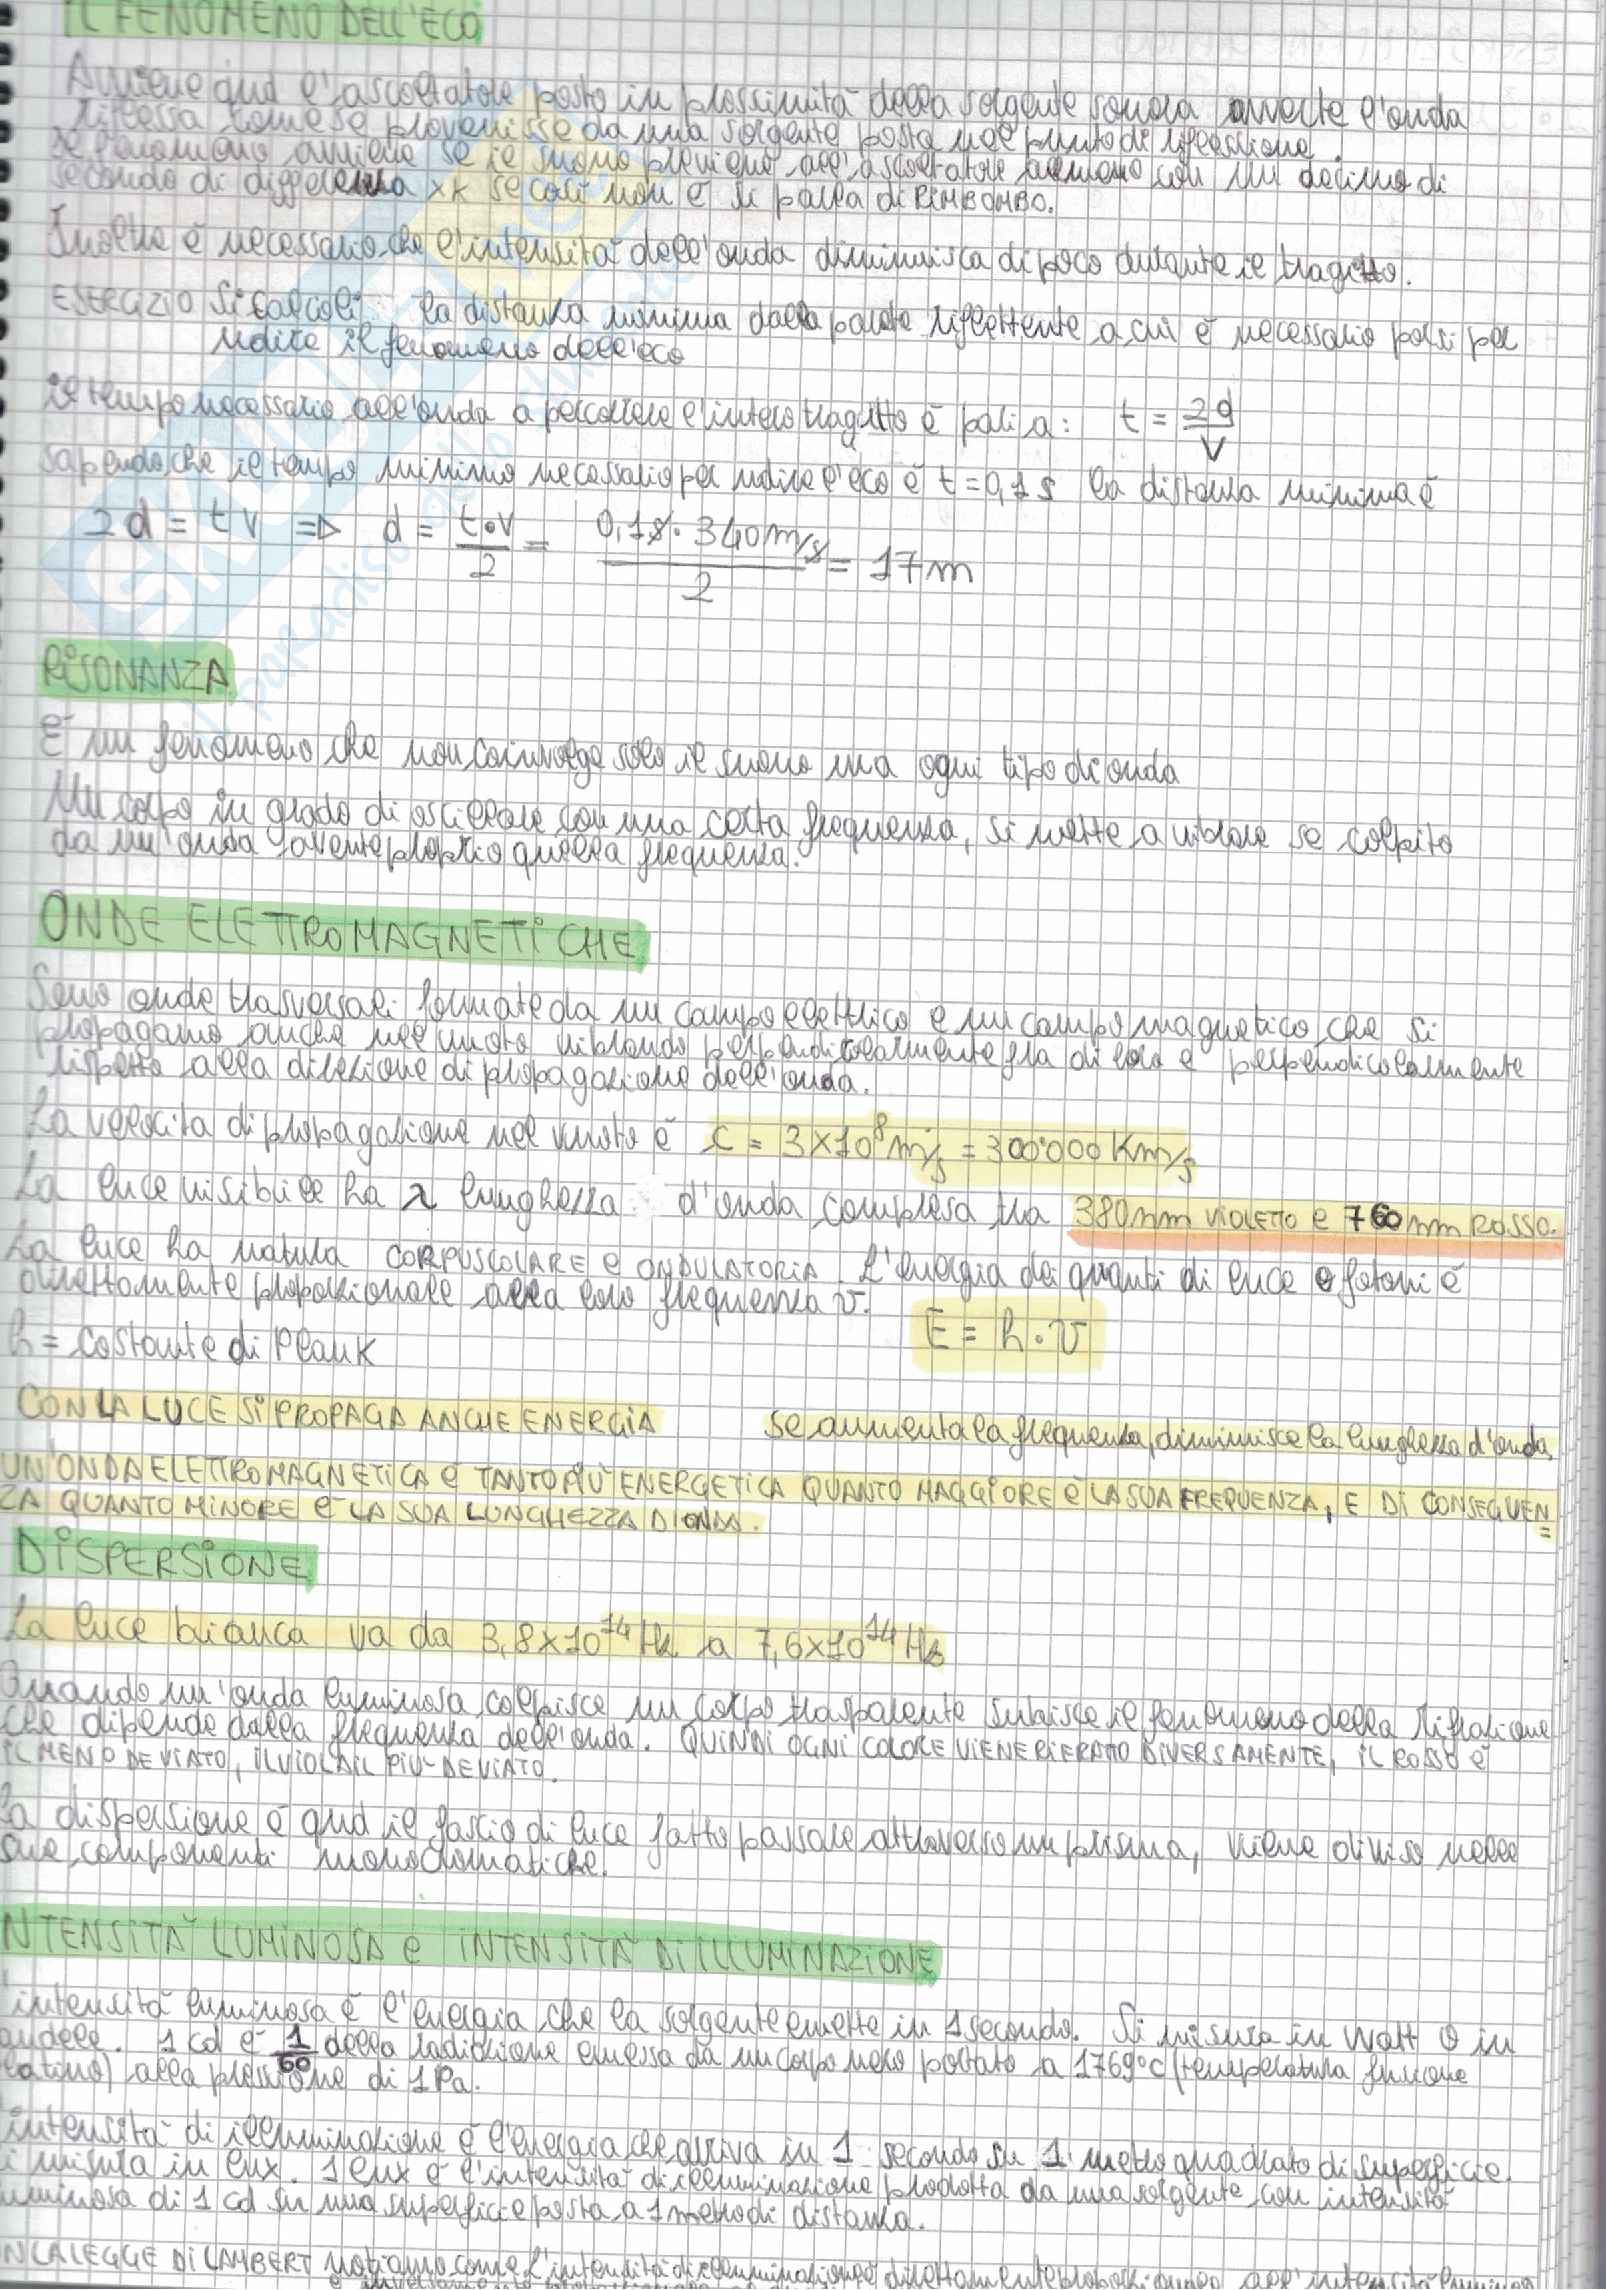 IL FENOMENO DELL'ECO
Avviene qnd l'ascoltatore posto in prossimità della sorgente sonora avverte l'onda
riflessa come se provenisse da una sorgente posta nel punto di riflessione.
Il fenomeno avviene se il suono pleviene all'ascoltatore almeno con un decimo di
secondo di differenza xk se così non è si parla di RIMBOMBO.
Inoltre è necessario che l'intensità dell'onda diminuisca di poco durante il tragitto.
ESERCIZIO Si calcoli la distanza minima dalla parete riflettente a cui è necessario porsi per
udire il fenomeno dell'eco
il tempo necessario all'onda a percorrere l'intero tragitto è pari a: t = 2d/V
sapendo che il tempo minimo necessario per udire l'eco è t=0,1s la distanza minima è
2d = tv => d = t•v/2 = 0,1s•340m/s/2 = 17m
RISONANZA
È un fenomeno che non coinvolge solo il suono ma ogni tipo di onda
Un corpo in grado di oscillare con una certa frequenza, si mette a vibrare se colpito
da un'onda avente proprio quella frequenza.
ONDE ELETTROMAGNETICHE
Sono onde trasversali formate da un campo elettrico e un campo magnetico che si
propagano anche nel vuoto vibrando perpendicolarmente fra di loro e perpendicolarmente
rispetto alla direzione di propagazione dell'onda.
La velocità di propagazione nel vuoto è c = 3×10⁸m/s = 300'000 Km/s
La luce visibile ha λ lunghezza d'onda compresa tra 380nm VIOLETTO e 760nm ROSSO.
La luce ha natura CORPUSCOLARE e ONDULATORIA. L'energia dei quanti di luce o fotoni è
direttamente proporzionale alla loro frequenza ν.
E = h•ν
h = costante di Plank
CON LA LUCE SI PROPAGA ANCHE ENERGIA se aumenta la frequenza, diminuisce la lunghezza d'onda,
UN'ONDA ELETTROMAGNETICA È TANTO PIÙ ENERGETICA QUANTO MAGGIORE È LA SUA FREQUENZA, E DI CONSEGUEN=
ZA QUANTO MINORE È LA SUA LUNGHEZZA D'ONDA.
DISPERSIONE
La luce bianca va da 3,8×10¹⁴Hz a 7,6×10¹⁴Hz
Quando un'onda luminosa colpisce un corpo trasparente subisce il fenomeno della rifrazione
che dipende dalla frequenza dell'onda. QUINDI OGNI COLORE VIENE RIFRATTO DIVERSAMENTE, IL ROSSO È
IL MENO DEVIATO, IL VIOLA IL PIÙ DEVIATO.
La dispersione è qnd il fascio di luce fatto passare attraverso un prisma, viene diviso nelle
sue componenti monocromatiche.
NTENSITÀ LUMINOSA e INTENSITÀ DI ILLUMINAZIONE
'intensità luminosa è l'energia che la sorgente emette in 1 secondo. Si misura in Watt o in
andele. 1 cd è 1/60 della radiazione emessa da un corpo nero portato a 1769°C (temperatura fusione
latino) alla pressione di 1Pa.
'intensità di illuminazione è l'energia che arriva in 1 secondo su 1 metro quadrato di superficie.
i misura in lux. 1 lux è l'intensità di illuminazione prodotta da una sorgente con intensità
uminosa di 1 cd su una superficie posta a 1 metro di distanza.
ON LA LEGGE DI LAMBERT notiamo come l'intensità di illuminazione è direttamente proporzionale all'intensità luminosa